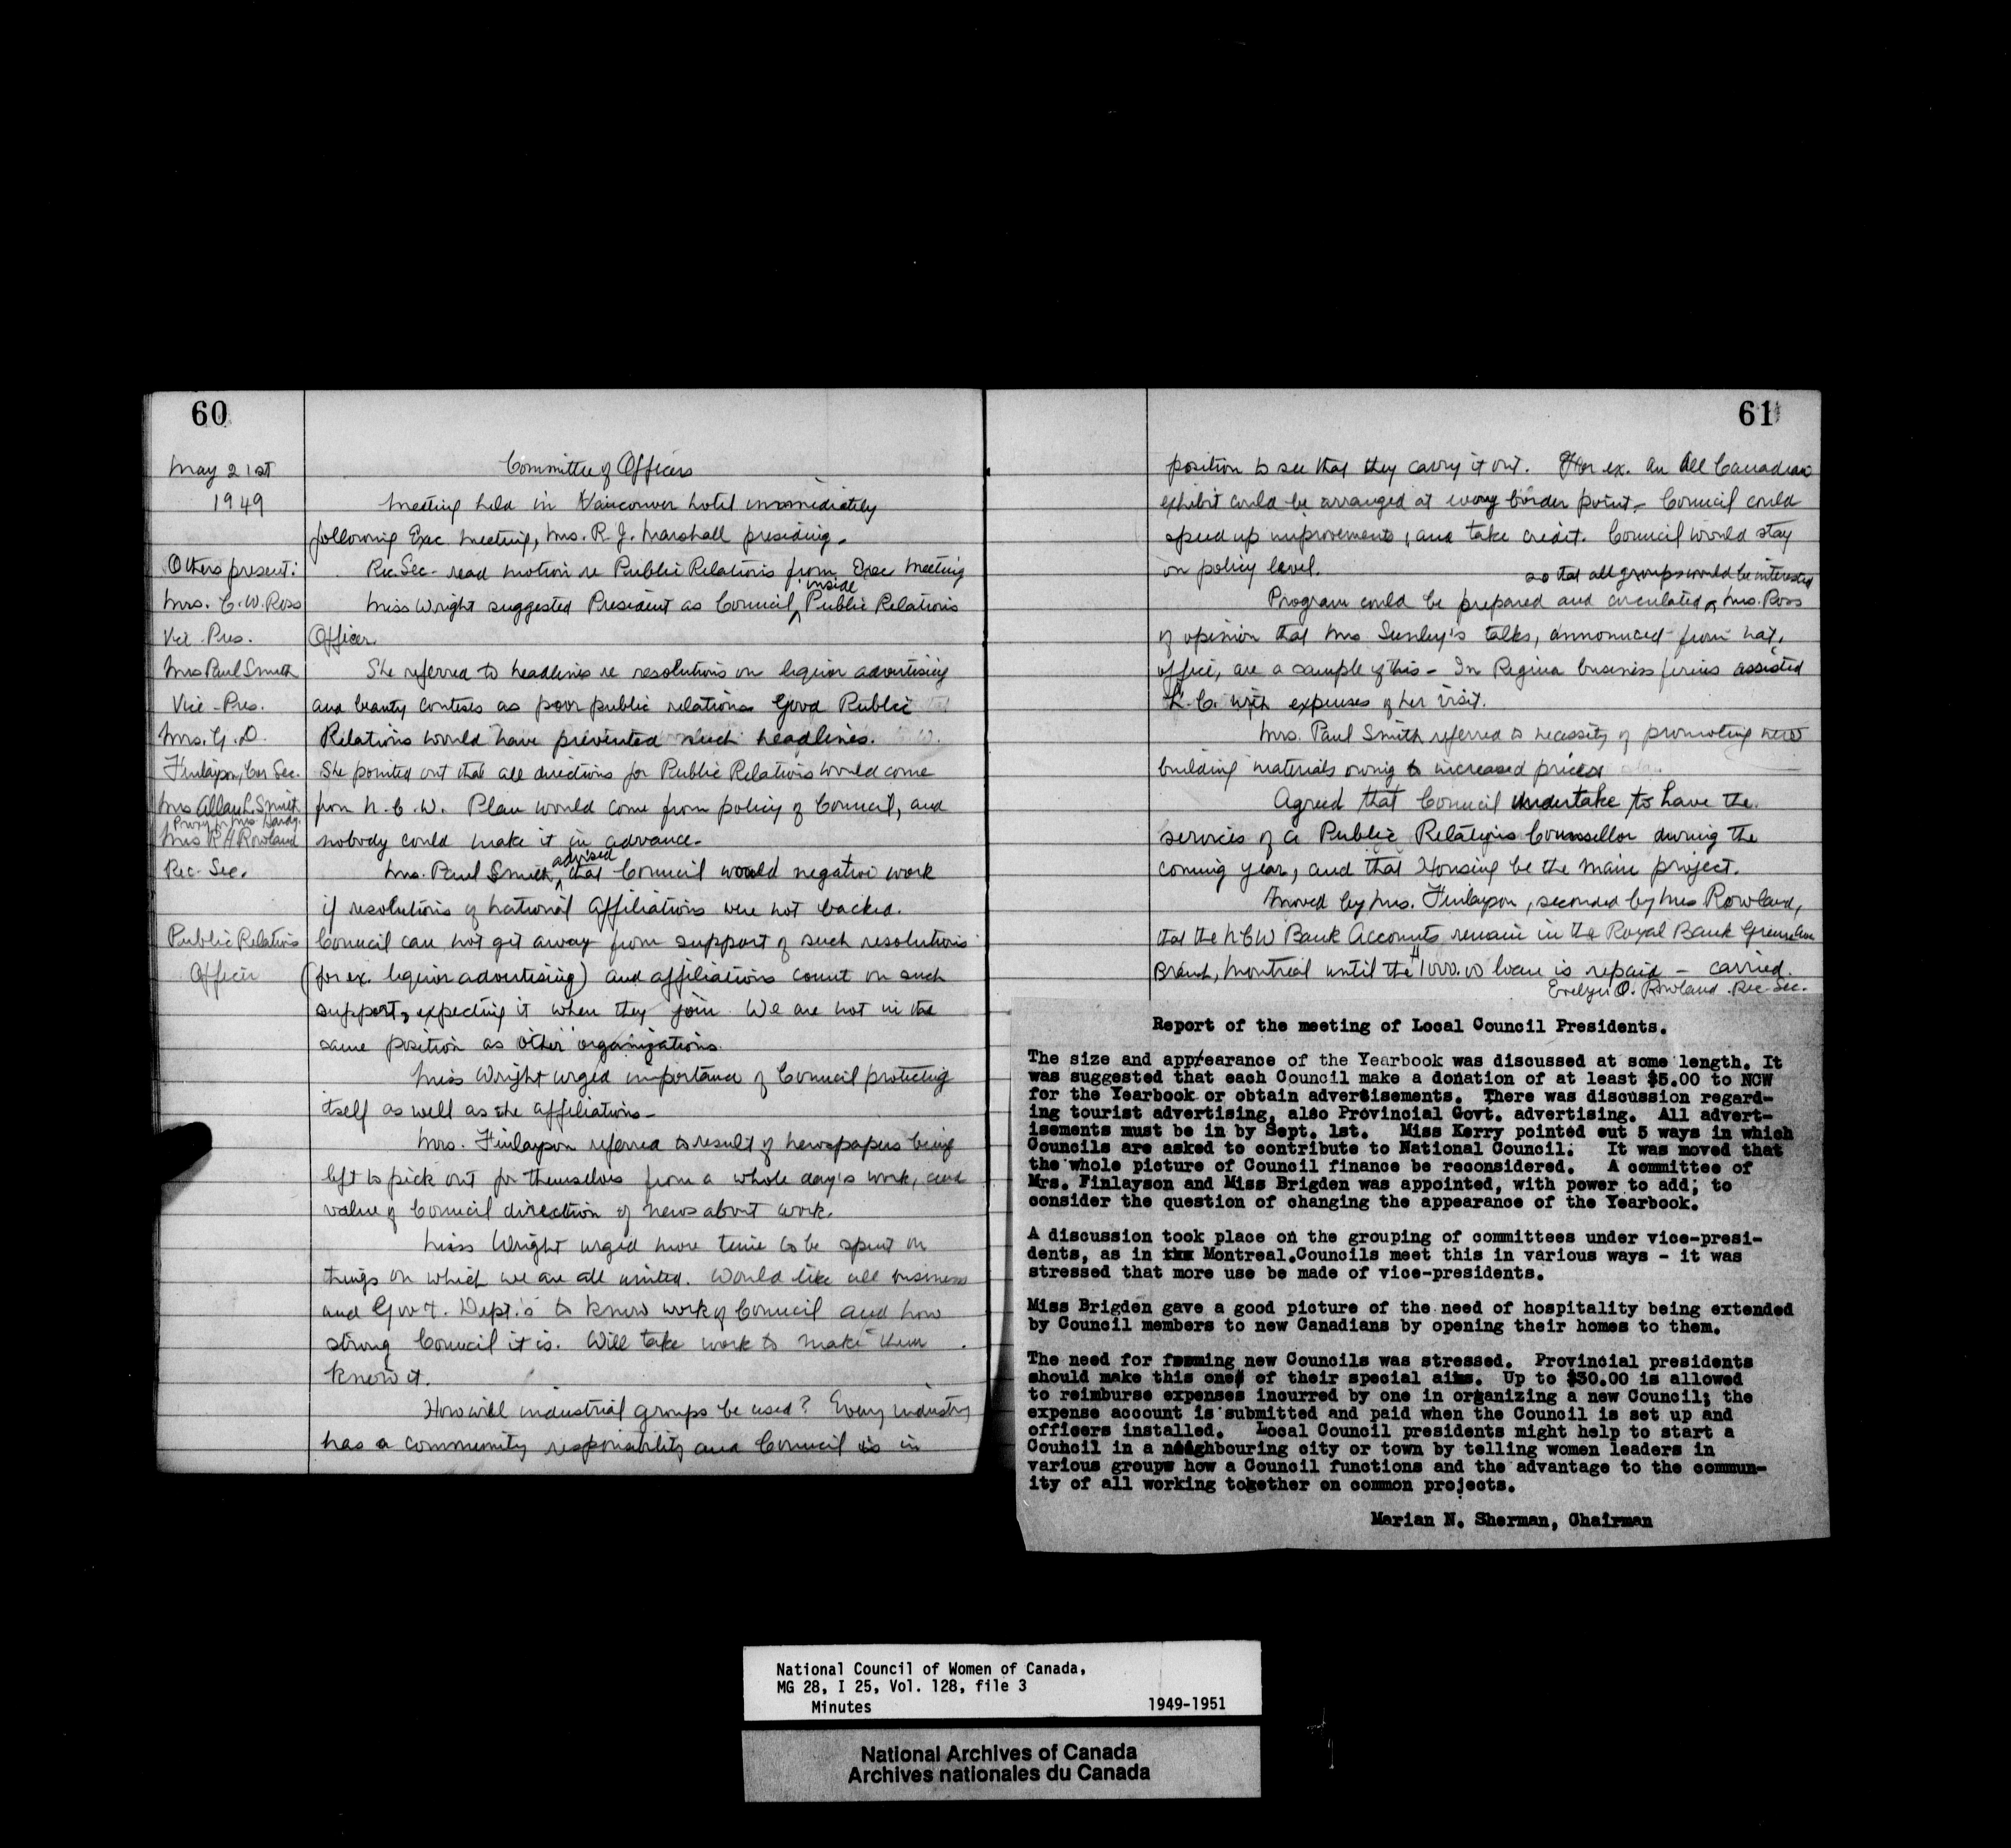 60
May 21st
1949
Others present:
Mrs. C. W. Ross
Vice-Pres.
Mrs Paul Smith
Vice-Pres.
Mrs. G. D.
Finlayson, Cor Sec.
Mrs Allan L. Smith
Proxy for Mrs. Hardy.
Mrs R H Rowland
Rec-Sec.
Public Relations
Officer
Committee of Officers
Meeting held in Vancouver hotel immediately
following Exec. Meeting, Mrs. R. J. Marshall presiding.
Rec Sec- read motion re Public Relations from Exec Meeting
Miss Wright suggested President as Council inside Public Relations
Officer.
She referred to headlines re resolutions on liquor advertising
and beauty contests as poor public relations Good Public
Relations would have prevented such headlines.
She pointed out that all directions for Public Relations would come
from N. C. W. Plan would come from policy of Council, and
nobody could make it in advance.
Mrs. Paul Smith advised that Council would negative work
if resolutions of National Affiliations were not backed.
Council can not get away from support of such resolutions
(for ex. liquor advertising) and affiliations count on such
support, expecting it when they join. We are not in the
same position as other organizations.
Miss Wright urged importance of Council protecting
itself as well as the affiliations-
Mrs. Finlayson referred to result of newspapers being
left to pick out for themselves from a whole day's work, and
value of Council direction of news about work.
Miss Wright urged more time to be spent on
things on which we are all united. Would like all business
and Gov't. Dept.'s to know work of Council and how
strong Council it is. Will take work to make them
know it.
How will industrial groups be used? Every industry
has a community responsibility and Council is in
61
position to see that they carry it out. For ex. an All Canadian
exhibit could be arranged at every border point- Council could
speed up improvements, and take credit. Council would stay
on policy level.
so that all groups would be interested
Program could be prepared and circulated Mrs. Ross
of opinion that Mrs Sunley's talks, announced from Nat.
office, are a sample of this- In Regina business firms assisted
L. C. with expenses of her visit.
Mrs. Paul Smith referred to necessity of promoting new
building materials owing to increased prices
Agreed that Council undertake to have the
services of a Public Relations Counsellor during the
coming year, and that Housing be the main project.
Moved by Mrs. Finlayson, seconded by Mrs Rowland,
that the NCW Bank Accounts remain in the Royal Bank
Branch, Montreal until the $1000.00 loan is repaid - carried.
Evelyn O. Rowland Rec-Sec.
Report of the meeting of Local Council Presidents.
The size and appearance of the Yearbook was discussed at some length. It
was suggested that each Council make a donation of at least $5.00 to NCW
for the Yearbook or obtain advertisements. There was discussion regard-
ing tourist advertising, also Provincial Govt. advertising. All advert-
isements must be in by Sept. 1st. Miss Kerry pointed out 5 ways in which
Councils are asked to contribute to National Council. It was moved that
the whole picture of Council finance be reconsidered. A committee of
Mrs. Finlayson and Miss Brigden was appointed, with power to add; to
consider the question of changing the appearance of the Yearbook.
A discussion took place on the grouping of committees under vice-presi-
dents, as in Montreal.Councils meet this in various ways - it was
stressed that more use be made of vice-presidents.
Miss Brigden gave a good picture of the need of hospitality being extended
by Council members to new Canadians by opening their homes to them.
The need for forming new Councils was stressed. Provincial presidents
should make this one of their special aims. Up to $30.00 is allowed
to reimburse expenses incurred by one in organizing a new Council; the
expense account is submitted and paid when the Council is set up and
officers installed. Local Council presidents might help to start a
Council in a neighbouring city or town by telling women leaders in
various groups how a Council functions and the advantage to the commun-
ity of all working together on common projects.
Marian N. Sherman, Chairman
National Council of Women of Canada,
MG 28, I 25, Vol. 128, file 3
Minutes 1949-1951
National Archives of Canada
Archives nationales du Canada